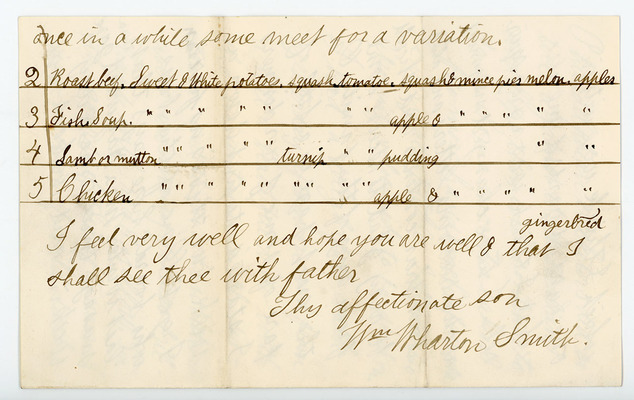 once in a while some meet for a variation.
2 Roast beef. Sweet & White potatoes, squash, tomatoe. squash & mince pies melon. apples
3 Fish Soup. " " " " " " " " apple & " " " " "
4 Lamb or mutton " " " " " turnip " " pudding " "
5 Chicken " " " " " " " " " apple & " " " " "
gingerbred
I feel very well and hope you are well & that I
shall see thee with father
Thy affectionate son
Wm Wharton Smith.